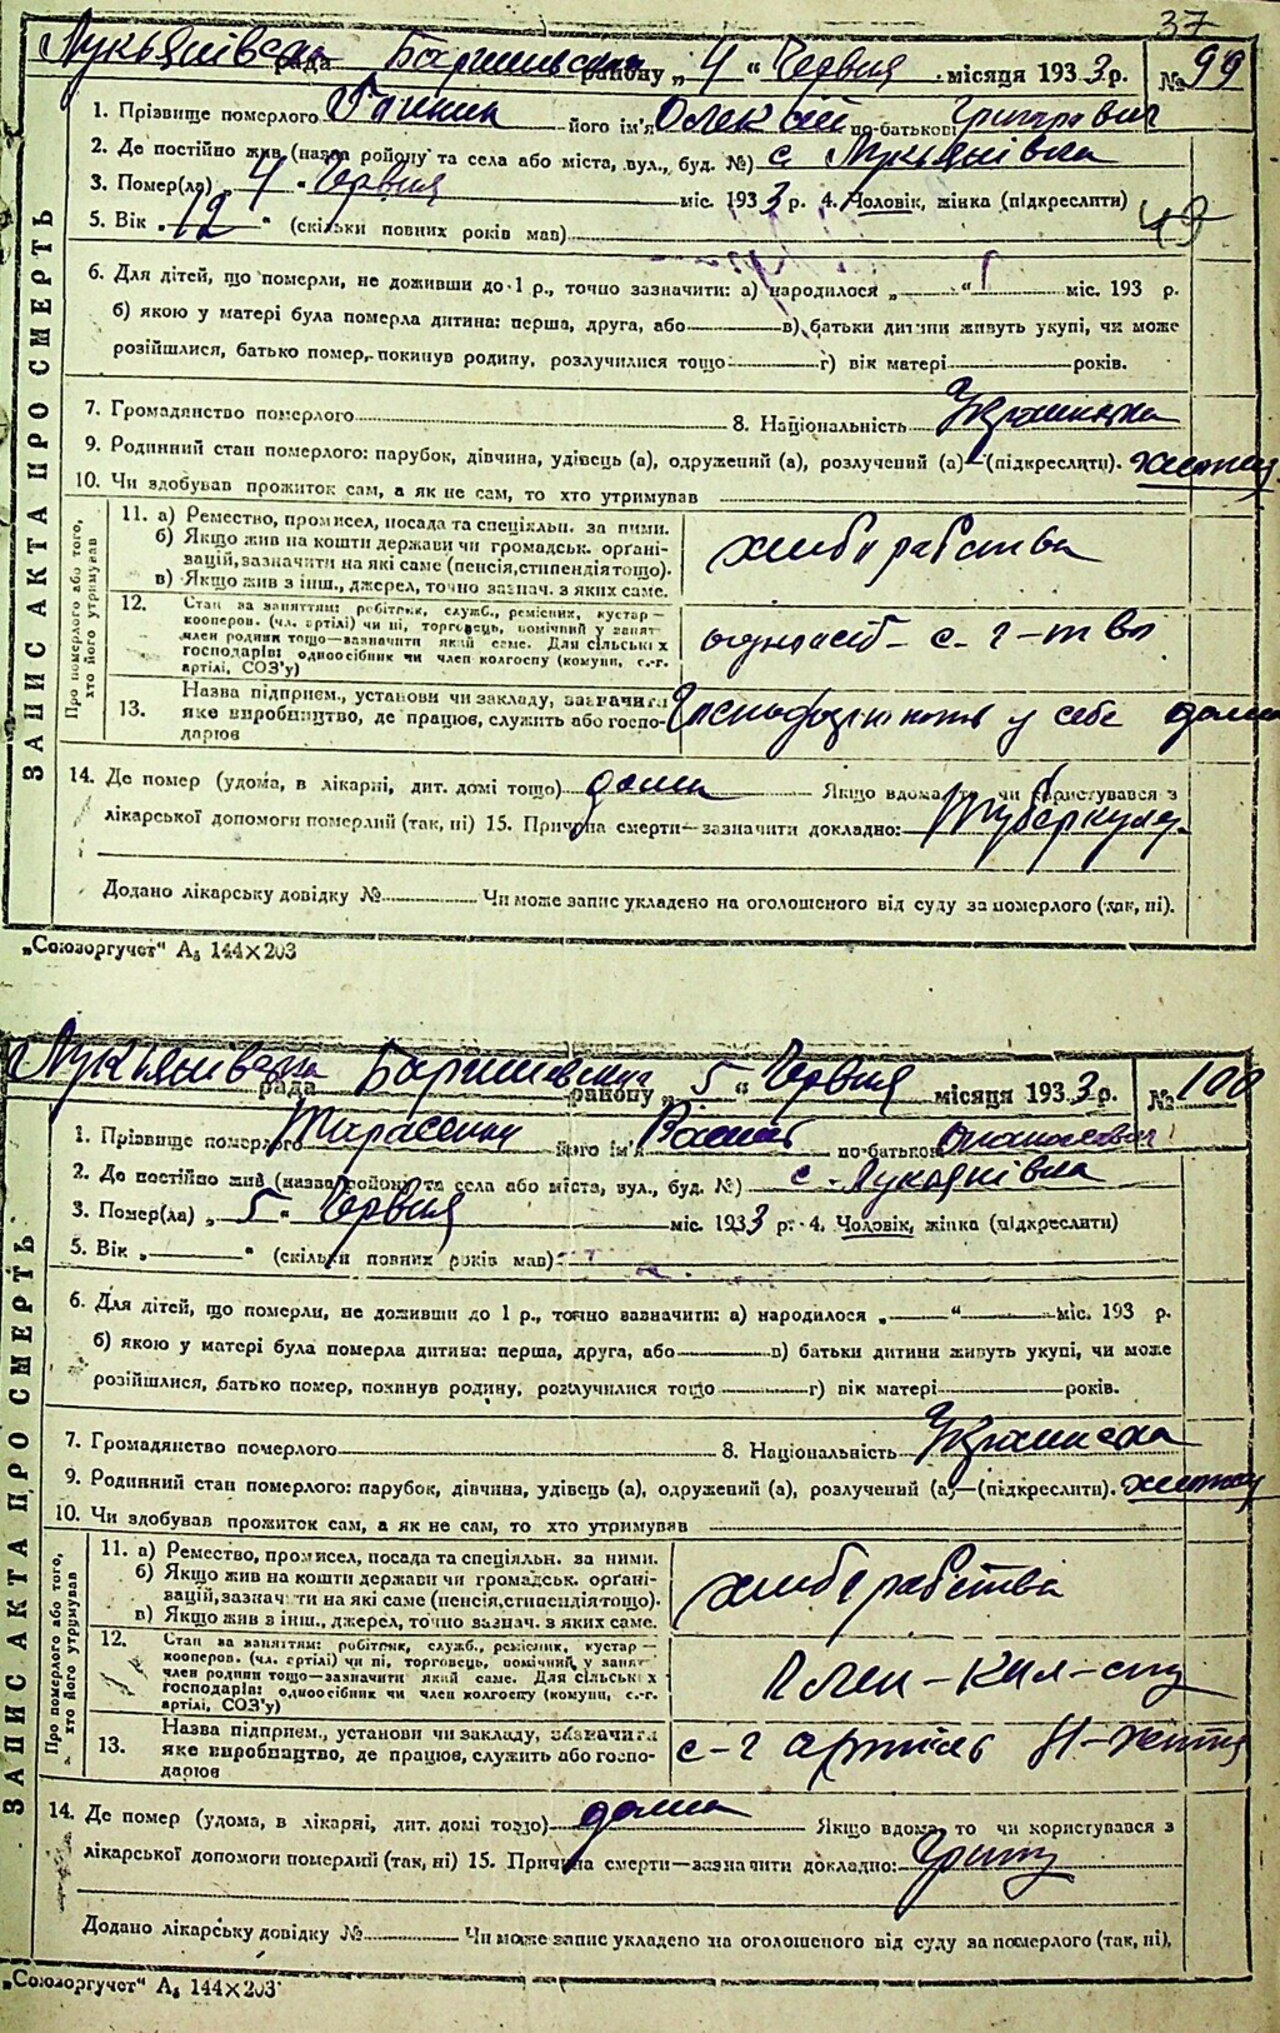 37
Лукьянівська рада Баришівського району „ 4 “ Червня місяця 1933 р. № 99
1. Прізвище померлого його ім'я Олексій по-батькові Григорович
2. Де постійно жив (назва ройону та села або міста, вул., буд. №) с Лукьянівка
3. Помер(ла) „ 4 “ Червня міс. 1933 р. 4. Чоловік, жінка (підкреслити)
5. Вік „ 12 “ (скільки повних років мав)
49
6. Для дітей, що померли, не доживши до 1 р., точно зазначити: а) народилося „ “ міс. 193 р.
б) якою у матері була померла дитина: перша, друга, або в) батьки дитини живуть укупі, чи може
розійшлися, батько помер, покинув родину, розлучилися тощо г) вік матері років.
7. Громадянство померлого 8. Національність Українська
9. Родинний стан померлого: парубок, дівчина, удівець (а), одружений (а), розлучений (а)—(підкреслити).
10. Чи здобував прожиток сам, а як не сам, то хто утримував
ЗАПИС АКТА ПРО СМЕРТЬ
Про померлого або того, хто його утримував
11. а) Ремество, промисел, посада та спеціяльн. за ними.
б) Якщо жив на кошти держави чи громадськ. орґані-
вацій, зазначити на які саме (пенсія, стипендія тощо).
в) Якщо жив з інш., джерел, точно зазнач. з яких саме.
хліборобство
12. Стан за заняттям: робітник, служб., ремісник, кустар—
кооперов. (чл. артілі) чи ні, торговець, помічний у занят
член родини тощо—зазначити який саме. Для сільських
господарів: одноосібник чи член колгоспу (комуни, с.-г.
артілі, СОЗ'у)
одноосіб- с-г-тва
13. Назва підприєм., установи чи закладу, зазначити
яке виробництво, де працює, служить або госпо-
дарює
у себе дома
14. Де помер (удома, в лікарні, дит. домі тощо) дома Якщо вдома, то чи користувався з
лікарської допомоги померлий (так, ні) 15. Причина смерти—зазначити докладно: Туберкульо.
Додано лікарську довідку № Чи може запис укладено на оголошеного від суду за померлого (так, ні).
„Союзоргучет“ А₅ 144×203
Лукьянівська рада Баришівського району „ 5 “ Червня місяця 1933 р. № 100
1. Прізвище померлого Тарасенко його ім'я Василь по-батькові
2. Де постійно жив (назва ройону та села або міста, вул., буд. №) с-Лукянівка
3. Помер(ла) „ 5 “ Червня міс. 1933 р. 4. Чоловік, жінка (підкреслити)
5. Вік „ “ (скільки повних років мав)
6. Для дітей, що померли, не доживши до 1 р., точно зазначити: а) народилося „ “ міс. 193 р.
б) якою у матері була померла дитина: перша, друга, або в) батьки дитини живуть укупі, чи може
розійшлися, батько помер, покинув родину, розлучилися тощо г) вік матері років.
7. Громадянство померлого 8. Національність Українська
9. Родинний стан померлого: парубок, дівчина, удівець (а), одружений (а), розлучений (а)—(підкреслити).
10. Чи здобував прожиток сам, а як не сам, то хто утримував
ЗАПИС АКТА ПРО СМЕРТЬ
Про померлого або того, хто його утримував
11. а) Ремество, промисел, посада та спеціяльн. за ними.
б) Якщо жив на кошти держави чи громадськ. орґані-
вацій, зазначити на які саме (пенсія, стипендія тощо).
в) Якщо жив в інш., джерел, точно зазнач. в яких саме.
хліборобства
12. Стан за заняттям: робітник, служб., ремісник, кустар—
кооперов. (чл. артілі) чи ні, торговець, помічний у занят
член родини тощо—зазначити який саме. Для сільських
господарів: одноосібник чи член колгоспу (комуни, с.-г.
артілі, СОЗ'у)
Член-кол-спу
13. Назва підприєм., установи чи закладу, зазначити
яке виробництво, де працює, служить або госпо-
дарює
с-г артіль Н-життя
14. Де помер (удома, в лікарні, дит. домі тощо) дома Якщо вдома, то чи користувався з
лікарської допомоги померлий (так, ні) 15. Причина смерти—зазначити докладно:
Додано лікарську довідку № Чи може запис укладено на оголошеного від суду за померлого (так, ні).
„Союзоргучет“ А₅ 144×203